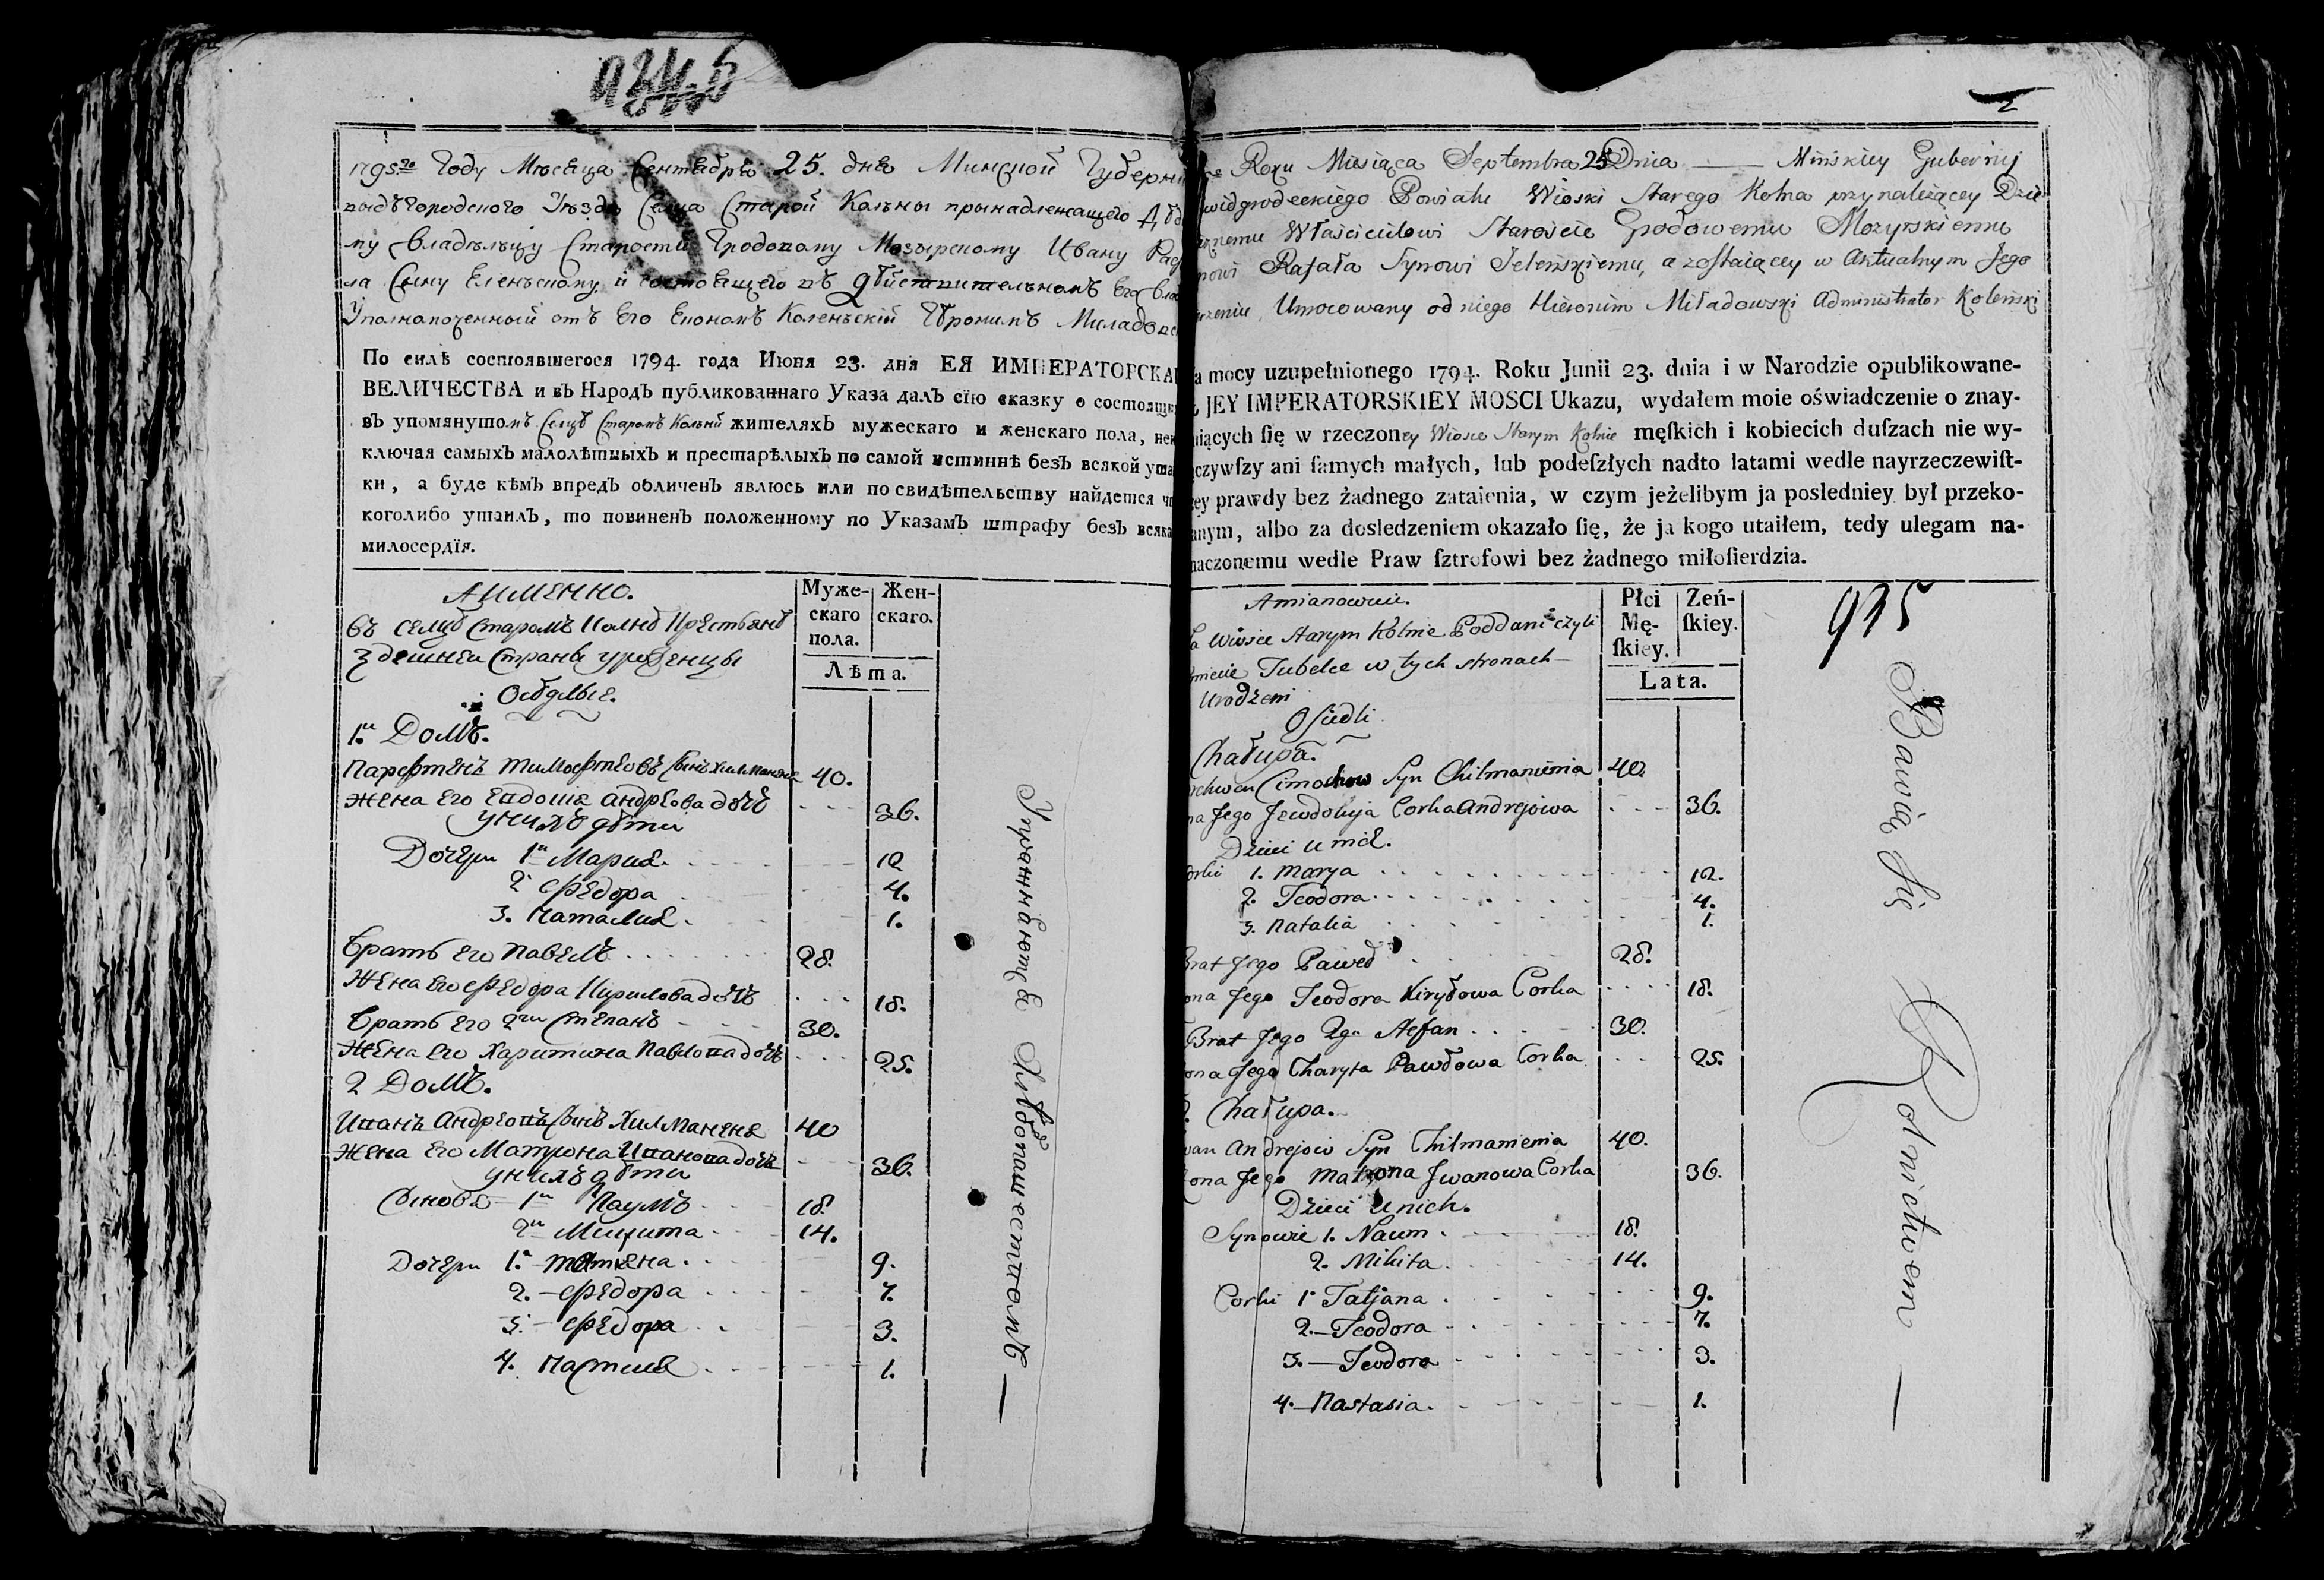 1795го Году Месеца Сентебрю 25. дня Минской Губерни
выдъгородского Уезда Селца Старой Колны принадлежащего Дѣд
му Владелцу Старости Гродовому Мозырскому Ивану Раф
ла Сыну Еленьскому и состоящего въ дѣйствительномъ Его Вла
Уполномоченный отъ Его Економъ Коленьский Еронимъ Миладов
По силѣ состоявшегося 1794. года Июня 23. дня ЕЯ ИМПЕРАТОРСКА
ВЕЛИЧЕСТВА и въ Народъ публикованнаго Указа далъ сїю сказку о состоящи
въ упомянутомъ Селцѣ Старомъ Колнѣ жителяхъ мужескаго и женскаго пола, неи
ключая самыхъ малолѣтныхъ и престарѣлыхъ по самой истиннѣ безъ всякой ута
ки, а буде кѣмъ впредъ обличенъ явлюсь или по свидѣтельству найдется чт
коголибо утаилъ, то повиненъ положенному по Указамъ штрафу безъ всяка
милосердїя.
Аименно.
въ селцѣ старомъ Колнѣ Крестьянѣ
здешнеи Страны уроденцы
Осѣдлые.
Муже-
скаго
пола.
Жен-
скаго.
Лѣта.
1.й Домъ.
Парфтенъ Тимофтеовъ Сынъ Хилманеня 40.
Жена Его Евдокия Андреова дочь 36.
У нихъ дѣти
Дочери 1я Мария 12
2 Федора 4.
3. Наталия 1.
Братъ Его Павелъ 28.
Жена Его Федора Кирилова дочь 18.
Братъ Его 2гй Степанъ 30.
Жена Его Харитина Павлова дочь 25.
2 Домъ.
Иванъ Андреовъ Сынъ Хилманеня 40
Жена Его Матрона Иванова дочь 36.
У нихъ дѣти
Синовя 1й Наумъ 18
2й Микита 14.
Дочери 1. Татяна 9.
2. Федора 7.
3. Федора 3.
4. Настасия 1.
Упражняютсе Хлѣбопашествомъ
2
Roku Miesiąca Septembra 25 Dnia Minskiey Gubernij
widgrodeckiego Powiatu Wioski Starego Kolna przynależącey Dzie
cznemu Włascicielowi Staroscie Grodowemu Mozyrskiemu
nowi Rafała Synowi Jeleńskiemu, a zostaiącey w Aktualnym Jego
rzeniu, Umocowany od niego Hieronim Miładowski Administrator Koleński
a mocy uzupełnionego 1794. Roku Junii 23. dnia i w Narodzie opublikowane-
JEY IMPERATORSKIEY MOSCI Ukazu, wydałem moie oświadczenie o znay-
niących ſię w rzeczoney Wiosce Starym Kolnie męſkich i kobiecich duſzach nie wy-
ączywſzy ani ſamych małych, lub podeſzłych nadto latami wedle nayrzeczewiſt-
zey prawdy bez żadnego zataienia, w czym jeżelibym ja posledniey był przeko-
anym, albo za dosledzeniem okazało ſię, że ja kogo utaiłem, tedy ulegam na-
naczonemu wedle Praw ſztrofowi bez żadnego miłoſierdzia.
Amianowicie.
Wiosce Starym Kolnie Poddani czyli
Tubelce w tych stronach
Urodzeni
Osiedli
Płci
Mę-
ſkiey.
Zeń-
ſkiey.
Lata.
935
Chałupa.
Cimochow Syn Chilmanienia 40.
na Jego Jewdokija Corka Andrejowa 36.
Dzieci u nich.
orki 1. Marya 12.
2. Teodora 4.
3. Natalia 1.
Brat Jego Paweł 28.
ona Jego Teodora Kiryłowa Corka 18.
Brat Jego 2gi Stefan 30.
ona Jego Charyta Pawłowa Corka 25.
2. Chałupa.
wan Andrejow Syn Chilmanienia 40.
Zona Jego Matrona Jwanowa Corka 36.
Dzieci u nich.
Synowie 1. Naum 18.
2. Mikita 14.
Corki 1 Tatjana 9.
2. Teodora 7.
3. Teodora 3.
4. Nastasia 1.
Bawią się Rolnictwem